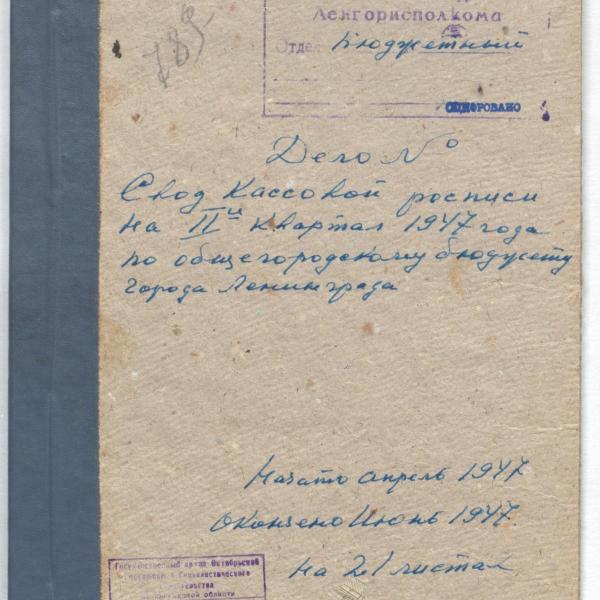 189
Ленгорисполкома
Отдел Бюджетный
ОЦИФРОВАНО
Дело №
Свод Кассовой росписи
на II й квартал 1947 года
по общегородскому бюджету
города Ленинграда
Начато апрель 1947
Окончено Июнь 1947.
на 21 листах
Государственный архив Октябрьской
Революции и Социалистического
области